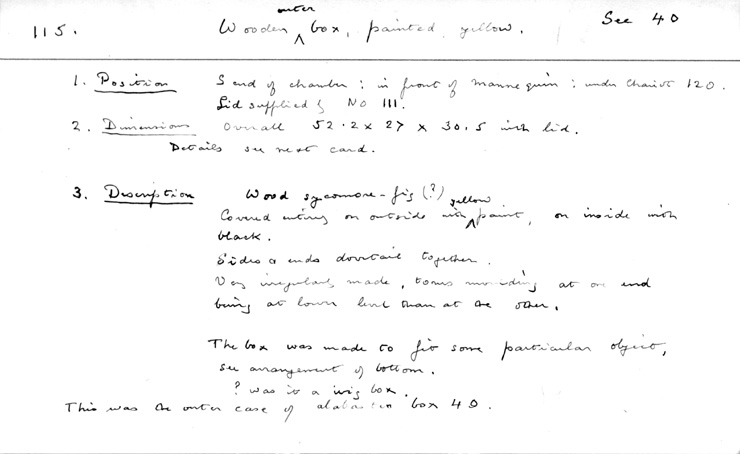 115. Wooden outer box, painted yellow. See 40
1. Position S end of chamber : in front of mannequin : under Chariot 120.
Lid supplied by No 111.
2. Dimensions Overall 52.2 x 27 x 30.5 with lid.
Details see next card.
3. Description Wood sycomore-fig (?)
Covered entirely on outside with yellow paint, on inside with
black.
Sides & ends dovetail together.
Very irregularly made, torus moulding at one end
being at lower level than at the other.
The box was made to fit some particular object,
see arrangement of bottom.
? was it a wig box.
This was the outer case of alabaster box 40.